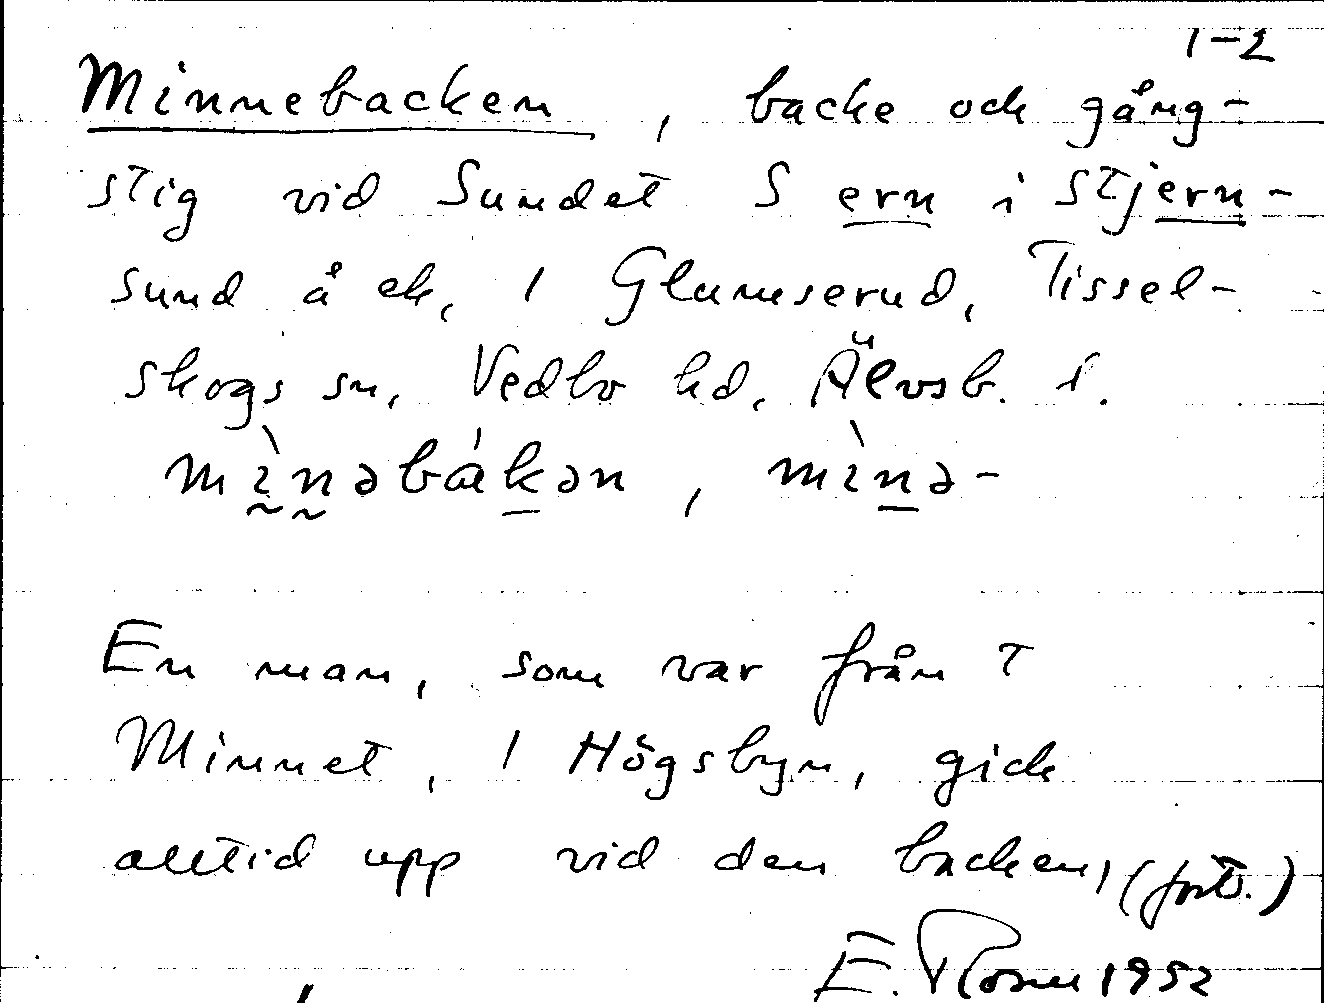 1-2
Minnebacken, backe och gång-
stig vid Sundet S ern i Stjern-
sund å ek, / Glumserud, Tissel-
skogs sn, Vedbo hd, Älvsb. l.
mìnəbákən, mìnə-
En man, som var från T
Minnet, / Högsbyn, gick
alltid upp vid den backen, (forts.)
E. Rosén 1952